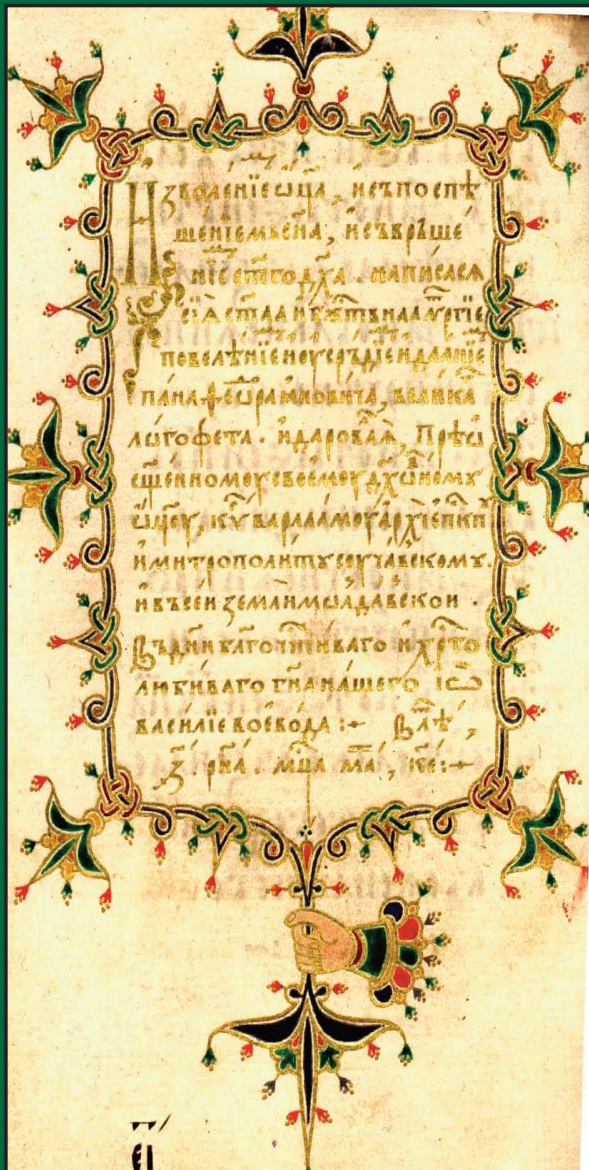 Изволенїе ѿца, и съ поспѣ
шенїемь с҃на, и съврꙿше
нїе ст҃го дх҃а. написася
сїѧ ст҃аа и бж҃ствнаа лѵтꙋргїе
повелѣнїе и оусрьдїе и даанїе
пана феѡ
лѡгофета. и дарова прѣѡ
сщ҃енномоу своемоу дꙋхѡвномꙋ
ѿцꙋ, кѷр варлаамоу архїепⷭ҇кп
и митрополитꙋ соучавскомꙋ.
и въсеи земли мѡлдавскои.
въ дн҃и бл҃гочьстиваго и хрⷭ҇то
любиваго гн҃а нашего, іѡ
василїе воевода :~ в лѣ,
҂зрн҃а. мц҃а маⷭ, к҃е :~